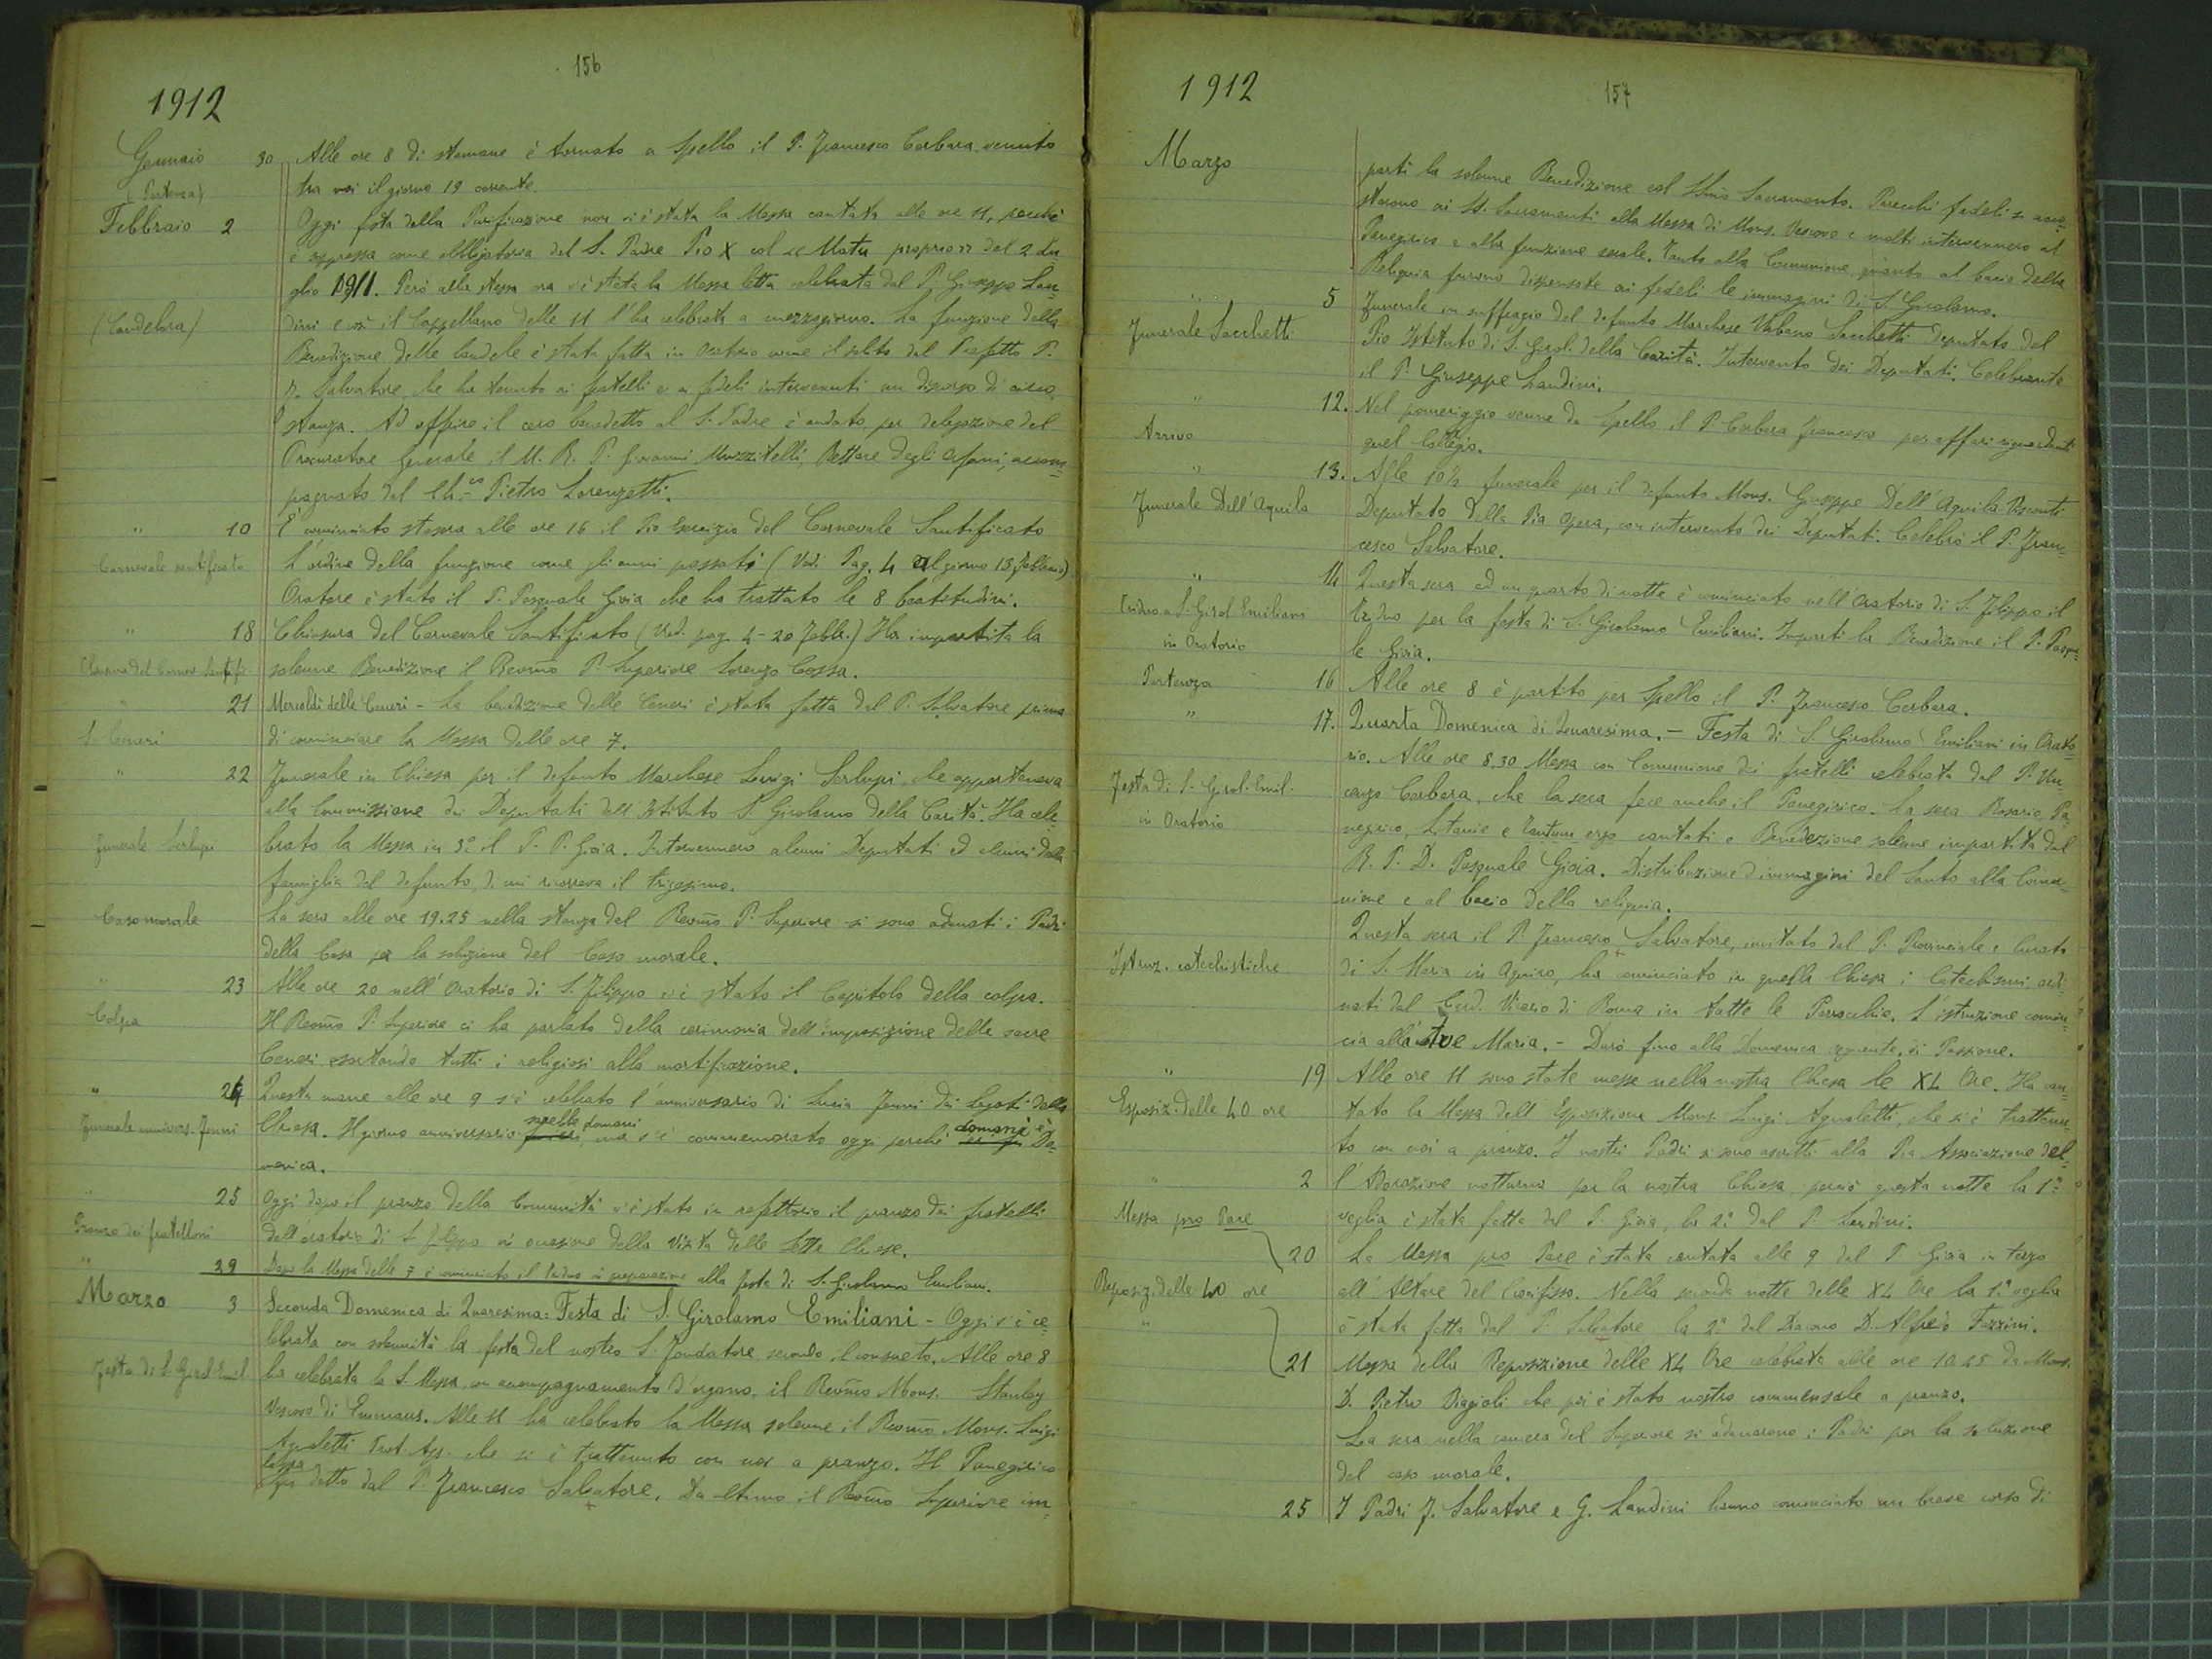 156
1912
Gennaio 30 Alle ore 8 di stamane è tornato a Spello il P. Francesco Cerbara venuto
(Partenza) tra noi il giorno 19 corrente.
Febbraio 2 Oggi festa della Purificazione non vi è stata la Messa cantata alle ore 11, perché
è soppressa come obbligatoria dal S. Padre Pio X col « Motu proprio » del 2 Lu-
glio 1911. Però alla stessa ora vi è stata la Messa letta celebrata dal P. Giuseppe Lan-
(Candelora) dini e così il Cappellano delle 11 l'ha celebrata a mezzogiorno. La funzione della
Benedizione delle Candele è stata fatta in Oratorio come il solito dal Prefetto P.
Salvatore, che ha tenuto ai fratelli e ai fedeli intervenuti un discorso di circo-
stanza. Ad offrire il cero benedetto al S. Padre è andato, per delegazione del
Procuratore Generale il M. R. P. Giovanni Muzzitelli, Rettore degli Orfani, accom-
pagnato dal Ch.co Pietro Lorenzetti.
" 10 È cominciato stasera alle ore 16 il Pio Esercizio del Carnevale Santificato
Carnevale santificato L'ordine della funzione come gli anni passati (Vedi Pag. 4 al giorno 13 Febbraio)
Oratore è stato il P. Pasquale Gioia che ha trattato le 8 beatitudini.
" 18 Chiusura del Carnevale Santificato (Ved. pag. 4 - 20 Febbr.) Ha impartita la
Chiusura del Carnev. Santifi. solenne Benedizione il Revmo P. Superiore Lorenzo Cossa.
" 21 Mercoldì delle Ceneri - La benedizione delle Ceneri è stata fatta dal P. Salvatore prima
S. Ceneri di cominciare la Messa delle ore 7.
" 22 Funerale in Chiesa per il defunto Marchese Luigi Serlupi, che apparteneva
alla Commissione dei Deputati dell'Istituto S. Girolamo della Carità. Ha cele-
Funerale Serlupi brato la Messa in 3° il P. P. Gioia. Intervennero alcuni Deputati ed alcuni della
famiglia del defunto, di cui ricorreva il trigesimo.
Caso morale La sera alle ore 19.25 nella stanza del Revmo P. Superiore si sono adunati i Padri
della Casa per la soluzione del Caso morale.
" 23 Alle ore 20 nell'Oratorio di S. Filippo vi è stato il Capitolo della colpa.
Colpa Il Revmo P. Superiore ci ha parlato della cerimonia dell'imposizione delle sacre
Ceneri esortando tutti i religiosi alla mortificazione.
" 24 Questa mane alle ore 9 s'è celebrato l'anniversario di Lucia Jenni dei Legati della
Funerale annivers. Jenni Chiesa. Il giorno anniversario sarebbe domani, ma s'è commemorato oggi perchè domani è Do-
menica.
" 25 Oggi dopo il pranzo della Comunità v'è stato in refettorio il pranzo dei fratelli
Pranzo dei fratelloni dell'oratorio di S. Filippo in occasione della Visita delle Sette Chiese.
" 29 Dopo la Messa delle 7 è cominciato il Triduo in preparazione alla festa di S. Girolamo Emiliani.
Marzo 3 Seconda Domenica di Quaresima: Festa di S. Girolamo Emiliani - Oggi s'è ce-
lebrata con solennità la festa del nostro S. Fondatore, secondo il consueto. Alle ore 8
Festa di S. Girol. Emil. ha celebrata la S. Messa, con accompagnamento d'organo, il Revmo Mons. Stanley
Vescovo di Emmaus. Alle 11 ha celebrato la Messa solenne il Revmo Mons. Luigi
Agnoletti Prot. Ap. che si è trattenuto con noi a pranzo. Il Panegirico
detto dal P. Francesco Salvatore. Da ultimo il Revmo Superiore im-
157
1912
Marzo partì la solenne Benedizione col SSmo Sacramento. Parecchi fedeli si acco-
starono ai SS. Sacramenti alla Messa di Mons. Vescovo e molti intervennero al
Panegirico e alla funzione serale. Tanto alla Comunione quanto al bacio della
Reliquia furono dispensate ai fedeli le immagini di S. Girolamo.
" 5 Funerale in suffragio del defunto Marchese Urbano Sacchetti Deputato del
Funerale Sacchetti Pio Istituto di S. Girol. della Carità. Intervento dei Deputati. Celebrante
il P. Giuseppe Landini.
" 12. Nel pomeriggio venne da Spello il P. Cerbara Francesco per affari riguardanti
Arrivo quel Collegio.
" 13. Alle 10½ funerale per il defunto Mons. Giuseppe Dell'Aquila Visconti
Funerale Dell'Aquila Deputato della Pia Opera, con intervento dei Deputati. Celebrò il P. Fran-
cesco Salvatore.
" 14 Questa sera ad un quarto di notte è cominciato nell'Oratorio di S. Filippo il
Triduo a S. Girol. Emiliani triduo per la festa di S. Girolamo Emiliani. Impartì la Benedizione il P. Pasqua-
in Oratorio le Gioia.
Partenza 16 Alle ore 8 è partito per Spello il P. Francesco Cerbara.
" 17. Quarta Domenica di Quaresima. - Festa di S. Girolamo Emiliani in Orato-
rio. Alle ore 8.30 Messa con Comunione dei fratelli celebrata dal P. Vin-
Festa di S. Girol. Emil. cenzo Cerbara, che la sera fece anche il Panegirico. La sera Rosario, Pa-
in Oratorio negirico, Litanie e Tantum ergo cantati e Benedizione solenne impartita dal
R. P. D. Pasquale Gioia. Distribuzione d'immagini del Santo alla Comu-
nione e al bacio della reliquia.
Questa sera il P. Francesco Salvatore, invitato dal P. Provinciale e Curato
Istruz. catechistiche di S. Maria in Aquiro, ha cominciato in quella Chiesa i Catechismi ordi-
nati dal Card. Vicario di Roma in tutte le Parrocchie. L'istruzione comin-
cia all'Ave Maria. - Durò fino alla Domenica seguente, di Passione.
" 19 Alle ore 11 sono state messe nella nostra Chiesa le XL Ore. Ha can-
Esposiz. delle 40 ore tato la Messa dell'Esposizione Mons. Luigi Agnoletti, che si è trattenu-
to con noi a pranzo. I nostri Padri si sono ascritti alla Pia Associazione del-
" 2 l'Adorazione notturna per la nostra Chiesa, perciò questa notte la 1a
Messa pro Pace veglia è stata fatta dal P. Gioia, la 2a dal P. Landini.
20 La Messa pro Pace è stata cantata alle 9 dal P. Gioia in terzo
Reposiz. delle 40 ore all'Altare del Crocifisso. Nella seconda notte delle XL Ore la 1a veglia
" è stata fatta dal P. Salvatore la 2a dal Diacono D. Alfredo Fazzini.
21 Messa della Reposizione delle XL Ore celebrata alle ore 10.45 da Mons.
D. Pietro Biagioli che poi è stato nostro commensale a pranzo.
La sera nella camera del Superiore si adunarono i Padri per la soluzione
del caso morale.
" 25 I Padri F. Salvatore e G. Landini hanno cominciato un breve corso di